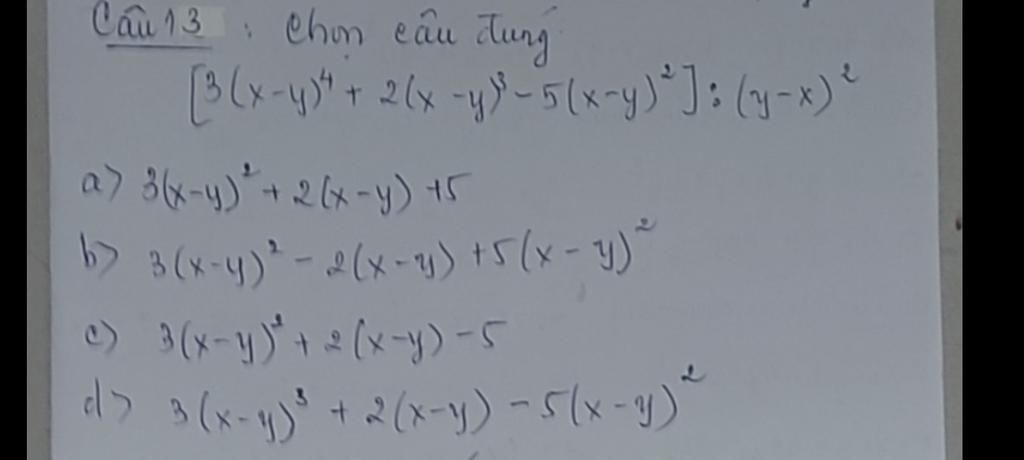 Câu 13 : Chọn câu đúng
[3(x-y)⁴ + 2(x-y)³ - 5(x-y)²] : (y-x)²
a> 3(x-y)² + 2(x-y) +5
b> 3(x-y)² - 2(x-y) +5(x-y)²
c) 3(x-y)² + 2(x-y) -5
d> 3(x-y)³ + 2(x-y) -5(x-y)²